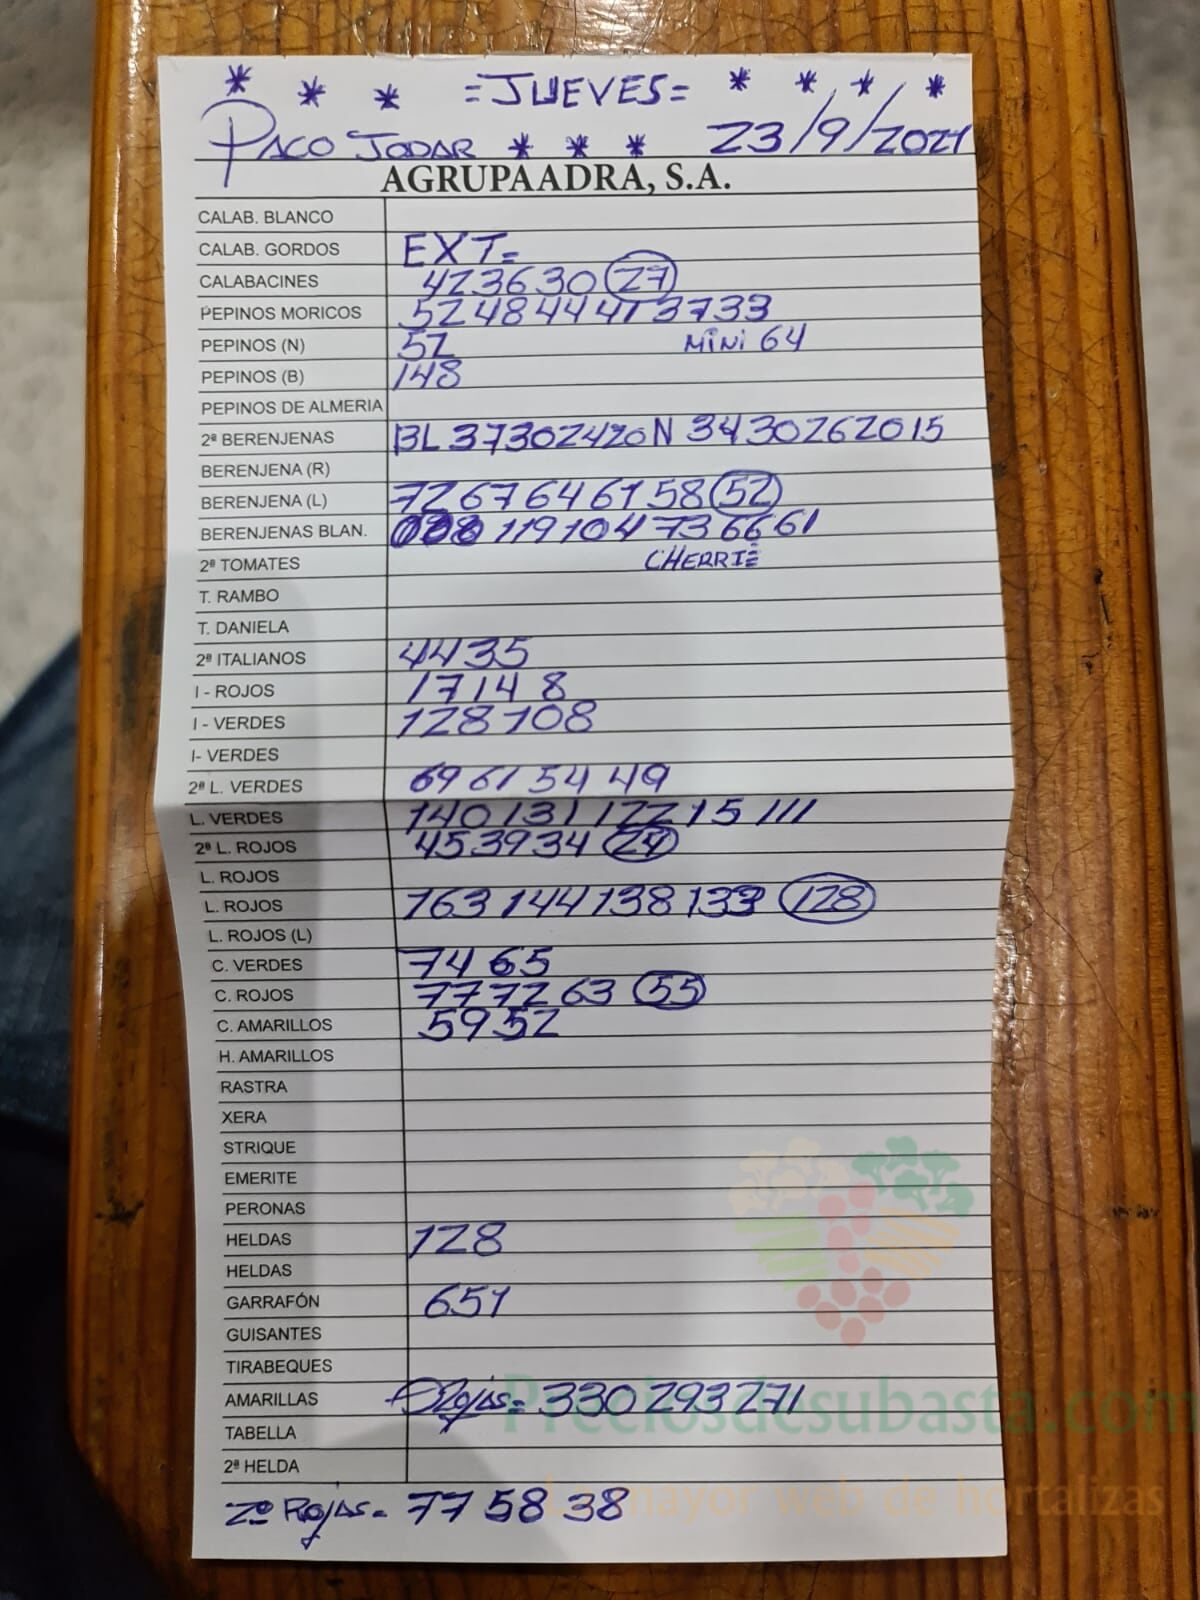 * * * =JUEVES= * * * *
PACO JODAR * * * 23/9/2021
AGRUPAADRA, S.A.
CALAB. BLANCO
CALAB. GORDOS EXT=
CALABACINES 42 36 30 27
PEPINOS MORICOS 52 48 44 41 37 33
PEPINOS (N) 52 MINI 64
PEPINOS (B) 148
PEPINOS DE ALMERIA
2ª BERENJENAS BL 37 30 24 20 N 34 30 26 20 15
BERENJENA (R)
BERENJENA (L) 72 67 64 61 58 52
BERENJENAS BLAN. 119 104 73 66 61
2ª TOMATES CHERRIE
T. RAMBO
T. DANIELA
2ª ITALIANOS 44 35
I - ROJOS 171 48
I - VERDES 128 108
I- VERDES
2ª L. VERDES 69 61 54 49
L. VERDES 140 131 122 115 111
2ª L. ROJOS 45 39 34 24
L. ROJOS
L. ROJOS 163 144 138 133 128
L. ROJOS (L)
C. VERDES 74 65
C. ROJOS 77 72 63 55
C. AMARILLOS 59 52
H. AMARILLOS
RASTRA
XERA
STRIQUE
EMERITE
PERONAS
HELDAS 128
HELDAS
GARRAFÓN 651
GUISANTES
TIRABEQUES
AMARILLAS Rojas= 330 293 271
TABELLA
2ª HELDA
2ª Rojas= 77 58 38
Preciosdesubasta.com
La mayor web de hortalizas